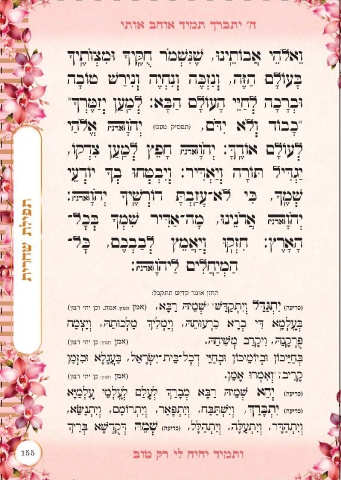 ה' יתברך תמיד אוהב אותי
וֵאלֹהֵי אֲבוֹתֵינוּ, שֶׁנִּשְׁמֹר חֻקֶּיךָ וּמִצְוֹתֶיךָ
בָּעוֹלָם הַזֶּה, וְנִזְכֶּה וְנִחְיֶה וְנִירַשׁ טוֹבָה
וּבְרָכָה לְחַיֵּי הָעוֹלָם הַבָּא: לְמַעַן יְזַמֶּרְךָ
כָבוֹד וְלֹא יִדֹּם, (תפסיק מעט) יְהֹוָה אֱלֹהַי
לְעוֹלָם אוֹדֶךָּ: יְהֹוָה חָפֵץ לְמַעַן צִדְקוֹ,
יַגְדִּיל תּוֹרָה וְיַאְדִּיר: וְיִבְטְחוּ בְךָ יוֹדְעֵי
שְׁמֶךָ, כִּי לֹא־עָזַבְתָּ דוֹרְשֶׁיךָ יְהֹוָה:
יְהֹוָה אֲדֹנֵינוּ, מָה־אַדִּיר שִׁמְךָ בְּכָל־
הָאָרֶץ: חִזְקוּ וְיַאֲמֵץ לְבַבְכֶם, כָּל־
הַמְיַחֲלִים לַיהֹוָה:
החזן אומר קדיש תתקבל:
(כריעה) יִתְגַּדַּל וְיִתְקַדַּשׁ שְׁמֵהּ רַבָּא, (אמן
בְּעָלְמָא דִּי בְרָא כִרְעוּתֵהּ, וְיַמְלִיךְ מַלְכוּתֵהּ, וְיַצְמַח
פֻּרְקָנֵהּ, וִיקָרֵב מְשִׁיחֵהּ, (אמן
בְּחַיֵּיכוֹן וּבְיוֹמֵיכוֹן וּבְחַיֵּי דְכָל־בֵּית־יִשְׂרָאֵל, בַּעֲגָלָא וּבִזְמַן
קָרִיב: וְאִמְרוּ אָמֵן. (אמן
(כריעה) יְהֵא שְׁמֵהּ רַבָּא מְבָרַךְ לְעָלַם לְעָלְמֵי עָלְמַיָּא
(כריעה) יִתְבָּרַךְ, וְיִשְׁתַּבַּח, וְיִתְפָּאַר, וְיִתְרוֹמַם, וְיִתְנַשֵּׂא,
וְיִתְהַדָּר, וְיִתְעַלֶּה, וְיִתְהַלָּל, (כריעה) שְׁמֵהּ דְּקֻדְשָׁא בְּרִיךְ
ותמיד יהיה לי רק טוב
תפילת שחרית
155